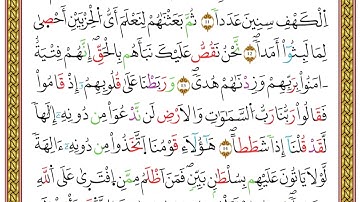 اِ۬لْكَهْفِ سِنِينَ عَدَداٗ ثُمَّ بَعَثْنَٰهُمْ لِنَعْلَمَ أَيُّ اُ۬لْحِزْبَيْنِ أَحْصَىٰ
لِمَا لَبِثُوٓاْ أَمَداٗۖ نَّحْنُ نَقُصُّ عَلَيْكَ نَبَأَهُم بِالْحَقِّۖ إِنَّهُمْ فِتْيَةٌ
ءَامَنُواْ بِرَبِّهِمْ وَزِدْنَٰهُمْ هُدىٗۖ وَرَبَطْنَا عَلَىٰ قُلُوبِهِمُۥٓ إِذْ قَامُواْ
فَقَالُواْ رَبُّنَا رَبُّ اُ۬لسَّمَٰوَٰتِ وَالْأَرْضِ لَن نَّدْعُوَاْ مِن دُونِهِۦٓ إِلَٰهاٗ
لَّقَدْ قُلْنَآ إِذاٗ شَطَطاًۖ هَٰٓؤُلَآءِ قَوْمُنَا اَ۪تَّخَذُواْ مِن دُونِهِۦٓ ءَالِهَةٗ
لَّوْلَا يَأْتُونَ عَلَيْهِم بِسُلْطَٰنِۢ بَيِّنٖۖ فَمَنْ أَظْلَمُ مِمَّنِ اِ۪فْتَرَىٰ عَلَى اَ۬للَّهِ